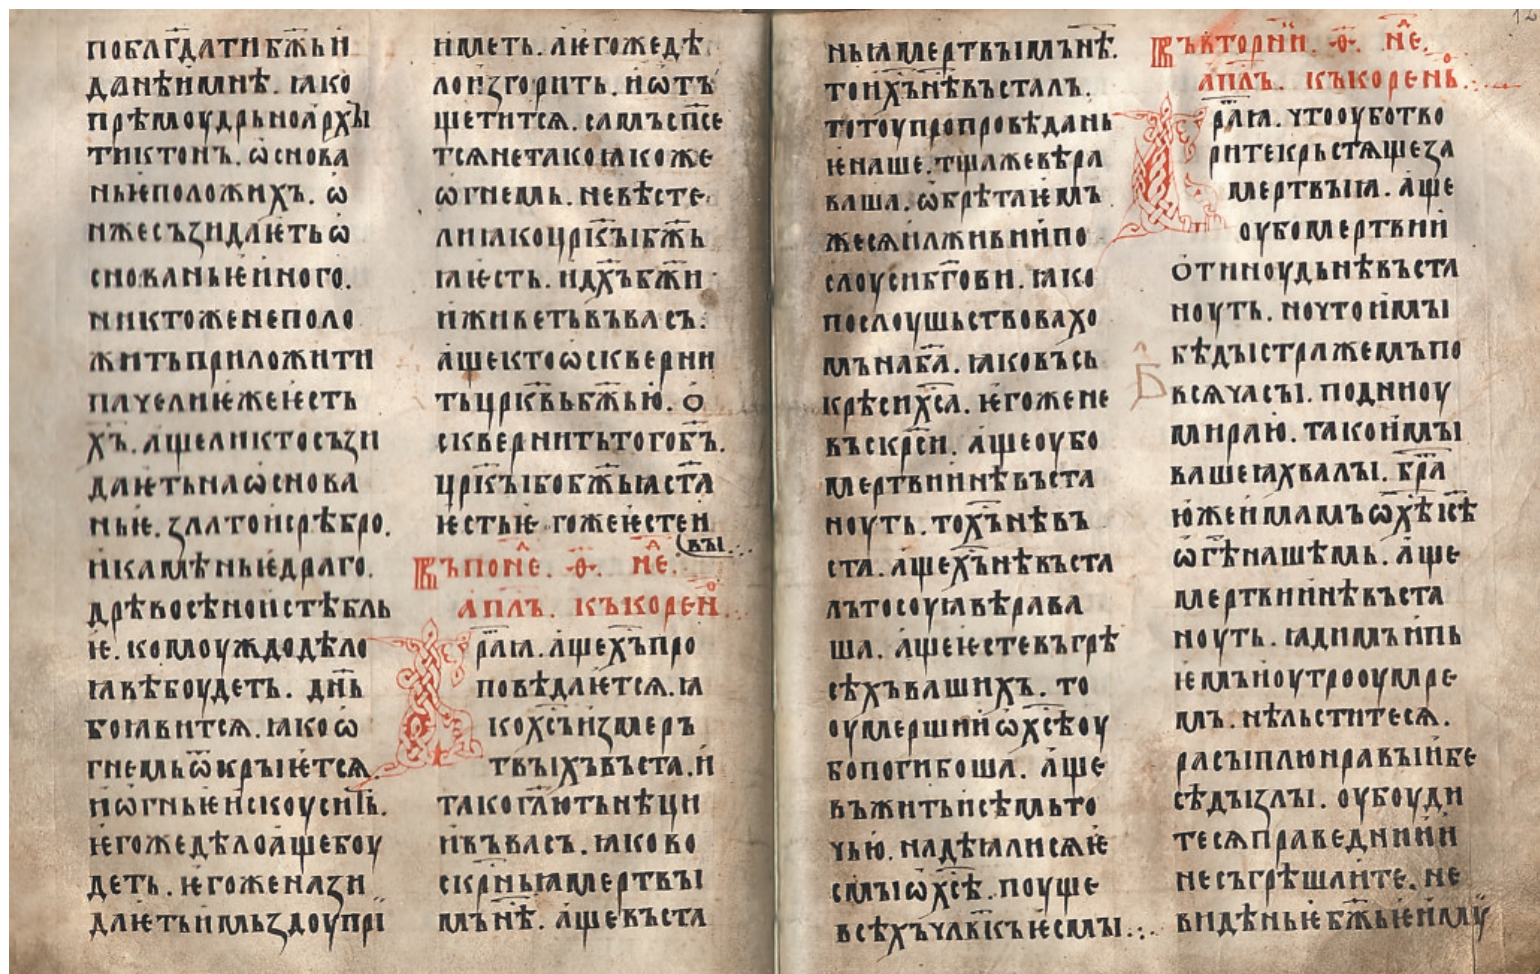 поблг҃дати бж҃ьи
данѣи мнѣ. ꙗко
прѣмоудрьно архъı
тиктонъ. ѡснова
ньѥ положихъ. ѡ
н же съзидаѥть ѡ
снованьѥ иного.
никто же не поло
жить приложити
паче лиѥже ѥсть
хъ. аще ли кто съзи
даѥть на ѡснова
ньѥ. злато и срѣбро.
и камѣньѥ драго.
дрѣво сѣно и стѣбль
ѥ. комоуждо дѣло
ꙗвѣ боудеть. дн҃ь
бо ꙗвится. ꙗко ѡ
гнемь ѿкрыѥтся.
и ѡгнь ѥ искоусить.
ѥгоже дѣло аще боу
деть. ѥгоже нази
даѥть и мьздоу прї
иметь. а ѥгоже дѣ
ло изгорить. и ѡтъ
щетится. самъ сп҃се
тся не тако ꙗко же
ѡгнемь. не вѣсте
ли ꙗко црк҃ъı бж҃ь
ꙗ ѥсть. и дх҃ъ бж҃и
и живеть въ васъ.
аще кто ѡскверни
ть црк҃вь бж҃ью. о
сквернить того бъ҃.
црк҃ъı бо бж҃ьꙗ ст҃а
ѥсть ѥгоже ѥсте и
въı.
Въ поне. ѳ. не.
апл҃ъ. къ корен.
раⷮꙗ. аще хъ҃ про
повѣдаѥтся. ꙗ
ко хс҃ъ из мер
твыхъ въста. и
тако гл҃ють нѣци
и въ васъ. ꙗко во
скрн҃ьꙗ мертвъı
мъ нѣ҃. аще въста
ньꙗ мертвъıмъ нѣ҃.
то и хъ҃ нѣ въсталъ.
то тоу про проповѣдань
ѥ наше. тща же вѣра
ваша. ѡбрѣтаѥмъ
же ся и лживии по
слоуси бг҃ови. ꙗко
послоушьствовахо
мъ на ба҃. ꙗко въсь
крѣси хс҃а. ѥгоже не
въскрс҃и. аще оубо
мертвии нѣ въста
ноуть. то хъ҃ нѣ въ
ста. аще хъ҃ нѣ въста
лъ то соуꙗ вѣра ва
ша. аще ѥсте въ грѣ
сѣхъ вашихъ. то
оумершии ѡ хс҃ѣ оу
бо погибоша. аще
въ жить и сѣмь то
чью. надѣꙗли ся ѥ
смъı ѡ хс҃ѣ. поуше
всѣхъ члв҃къ ѥсмъı.
Въ вторни. ѳ. не.
апл҃ъ. къ корено.
раⷮꙗ. что оубо тво
рите крьстяще за
мертвыꙗ. аще
оубо мертвии
отиноудь нѣ въста
ноуть. но что и мъı
бѣдъı стражемъ по
вся часъı. по дн҃и оу
мираю. тако и мъı
вашеꙗ хвалъı. бр҃а
юже имамъ ѡ хѣ҃ ісѣ҃
ѡ гѣ҃ нашѣмь. аще
мертвии нѣ въста
ноуть. ꙗдимъ и пь
ѥмъ и оутро оумре
мъ. нѣ льститеся.
расыплю нравъı и бе
сѣдъı злъı. оубоуди
теся праведнии и
не съгрѣшаите. не
видѣньѥ бж҃ьѥ имү